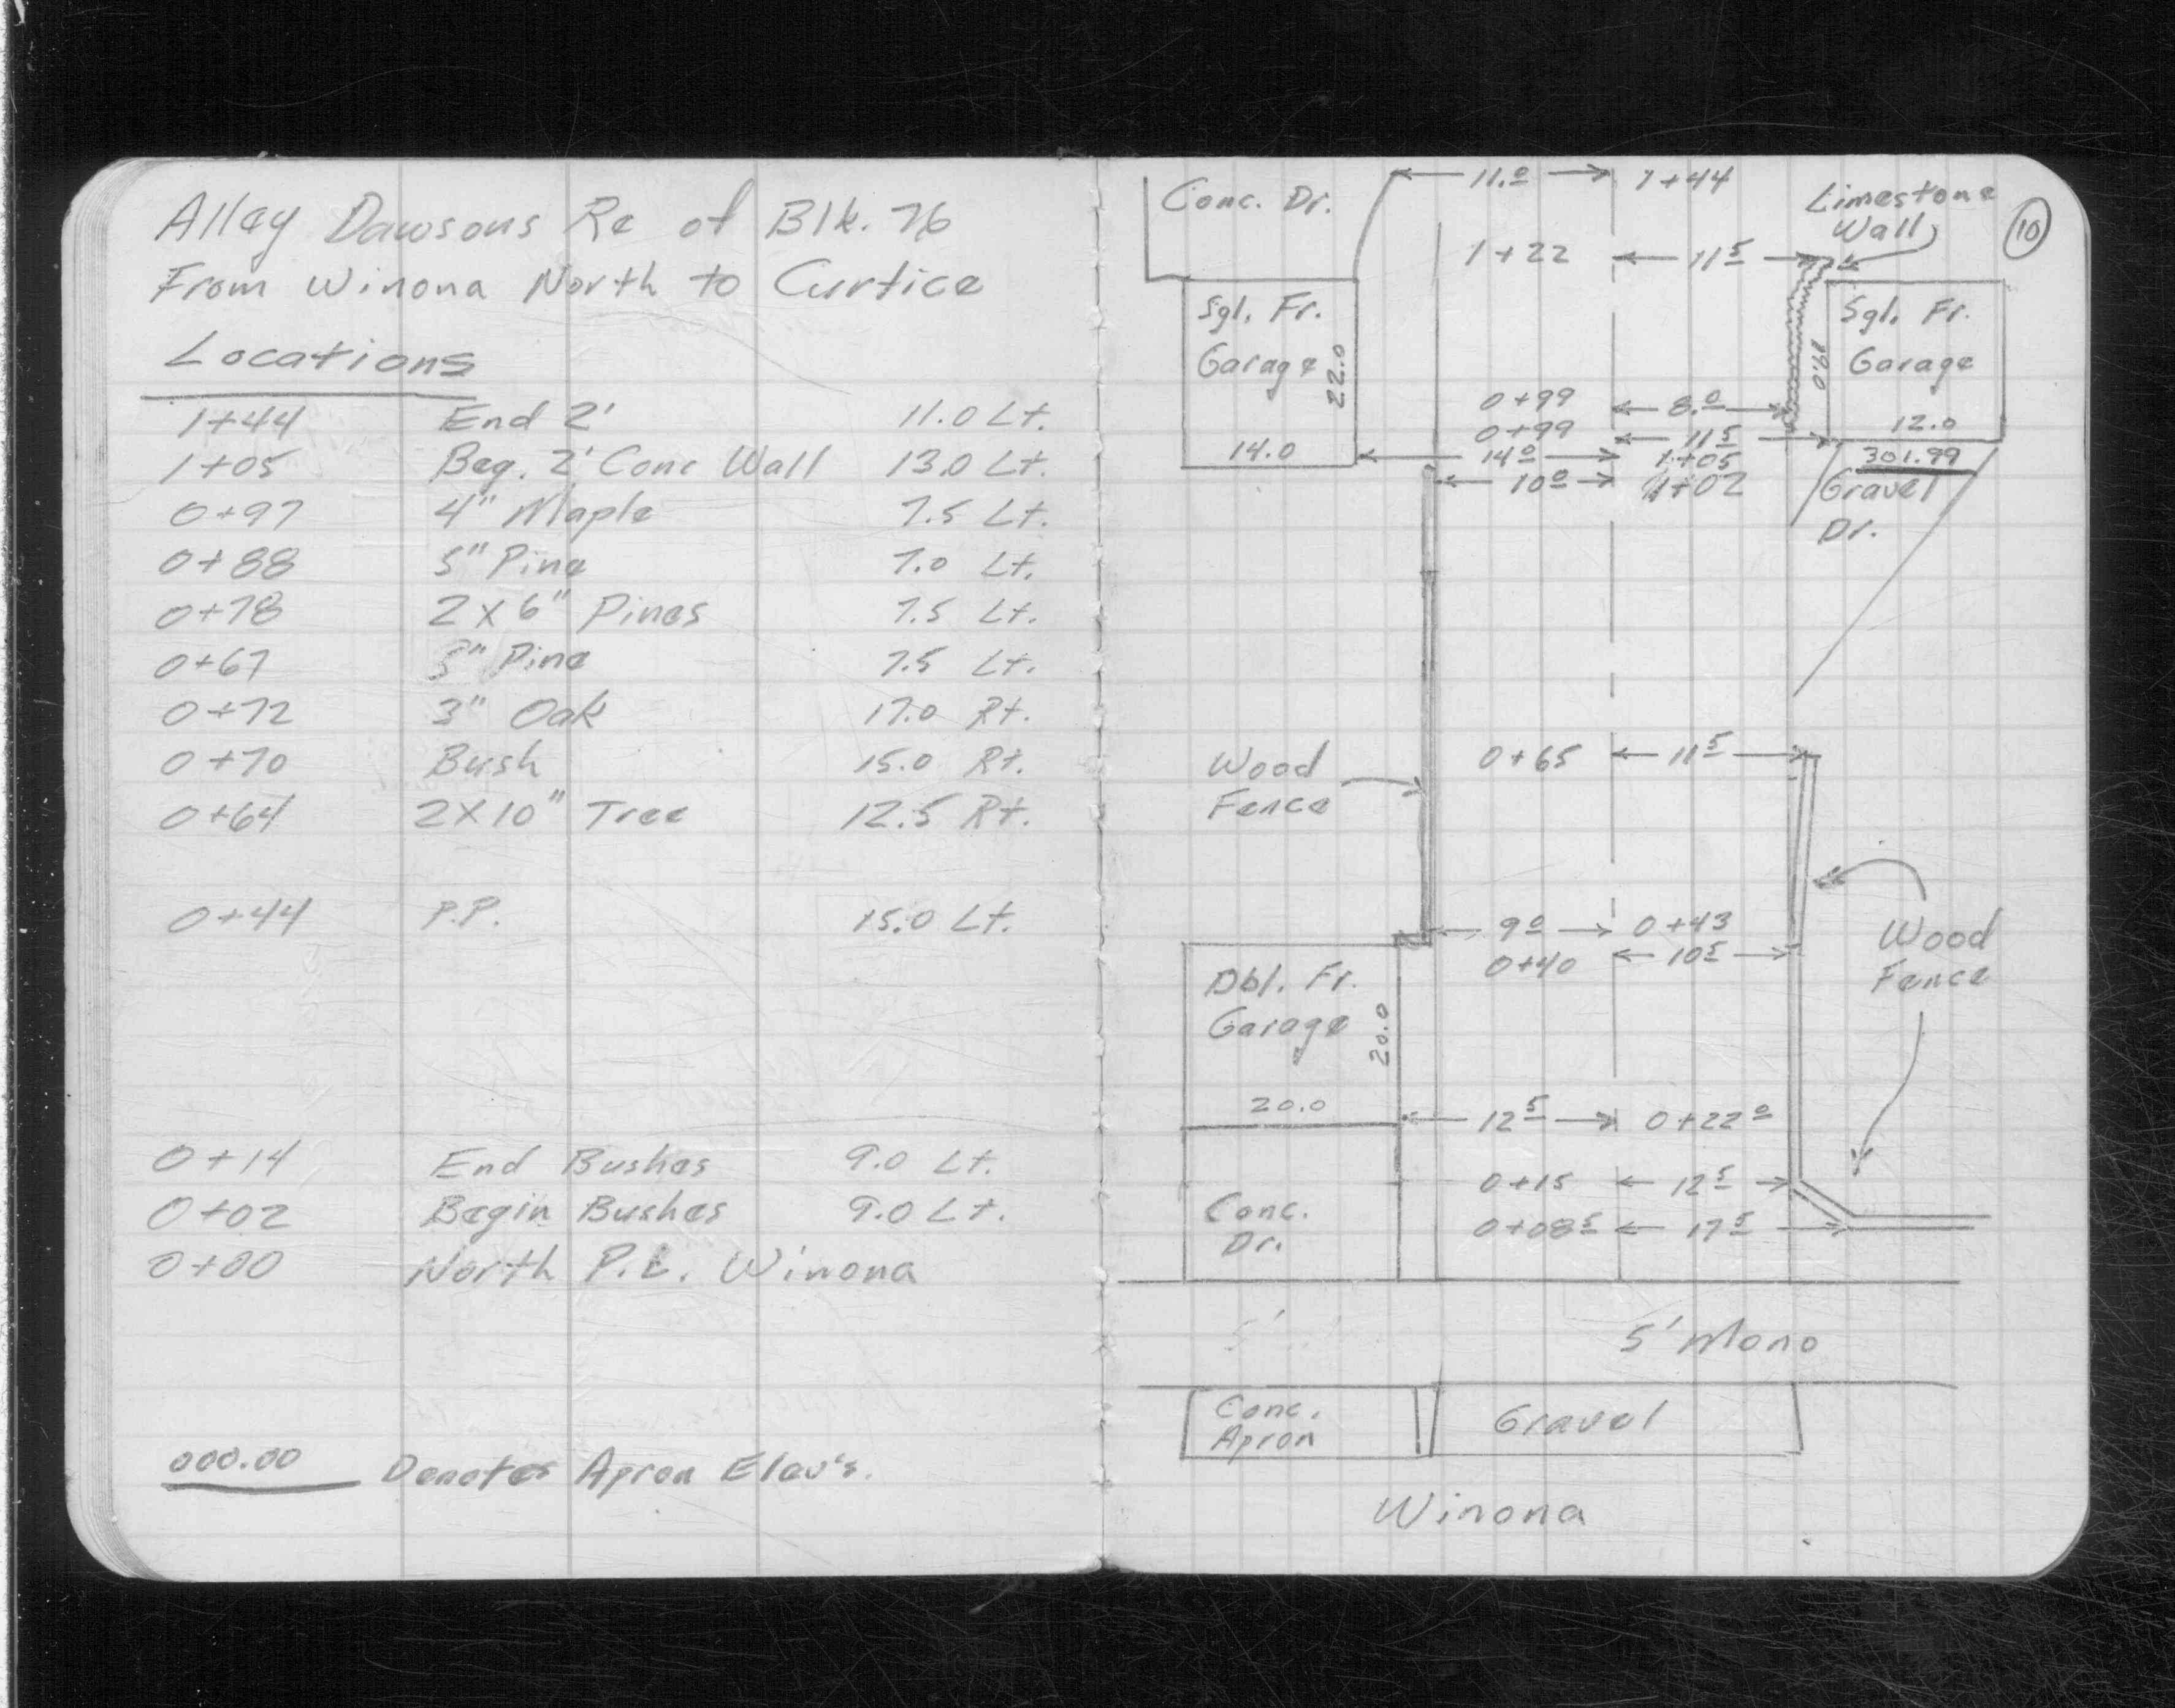 Alley Dawsons Re of Blk. 76
From Winona North to Curtice
Locations
1+44 End 2' 11.0 Lt.
1+05 Beg. 2' Conc Wall 13.0 Lt.
0+97 4" Maple 7.5 Lt.
0+88 5" Pine 7.0 Lt.
0+78 2X6" Pines 7.5 Lt.
0+67 5" Pine 7.5 Lt.
0+72 3" Oak 17.0 Rt.
0+70 Bush 15.0 Rt.
0+64 2X10" Tree 12.5 Rt.
0+44 P.P. 15.0 Lt.
0+14 End Bushes 9.0 Lt.
0+02 Begin Bushes 9.0 Lt.
0+00 North P.L. Winona
000.00 Denotes Apron Elev's.
10
Conc. Dr. 11.0 1+44
Limestone
Wall
1+22 11.5
Sgl. Fr.
Garage
22.0
14.0
Sgl. Fr.
Garage
12.0
0+99 8.0
0+99 11.5
14.0 1+05
10.0 1+02
301.99
Gravel
Dr.
Wood
Fence
0+65 11.5
9.0 0+43
0+40 10.5
Wood
Fence
Dbl. Fr.
Garage
20.0
20.0
12.5 0+22.0
0+15 12.5
0+08.5 17.5
Conc.
Dr.
5' Mono
Conc.
Apron
Gravel
Winona